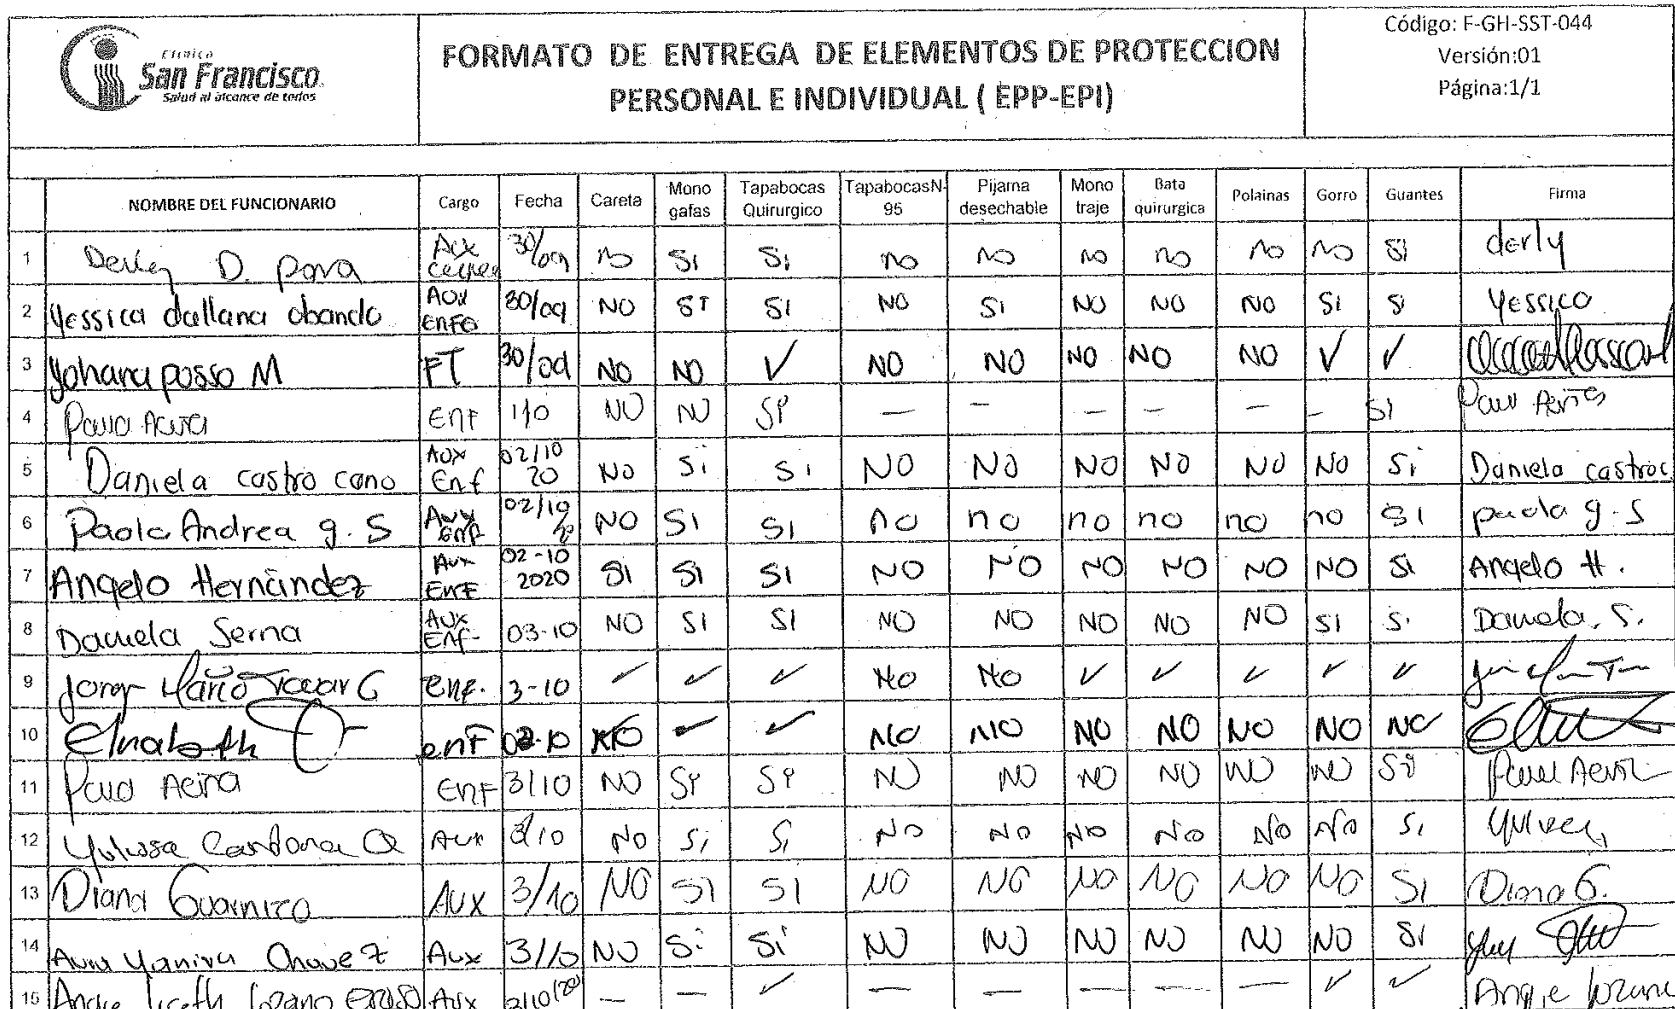 Clínica
San Francisco.
Salud al alcance de todos
FORMATO DE ENTREGA DE ELEMENTOS DE PROTECCION
PERSONAL E INDIVIDUAL ( EPP-EPI)
Código: F-GH-SST-044
Versión:01
Página:1/1
NOMBRE DEL FUNCIONARIO Cargo Fecha Careta Mono gafas Tapabocas Quirurgico TapabocasN-95 Pijama desechable Mono traje Bata quirurgica Polainas Gorro Guantes Firma
1 D. Aux 30/09 no SI SI no no no no no no SI derly
2 Yessica dallana obando Aux Enfe 30/09 NO SI SI NO SI NO NO NO SI SI Yessica
3 Yohana posso M FT 30/09 NO NO ✓ NO NO NO NO NO ✓ ✓
4 Enf 1/10 NO NO Si — — — — — — SI
5 Daniela castro cano Aux Enf 02/10 20 No Si Si NO NO NO NO NO NO Si Daniela castro c
6 Paola Andrea g. S Aux Enf 02/10 NO SI SI no no no no no no SI paola g. S
7 Angelo Hernández Aux Enf 02-10 2020 Si Si Si NO NO NO NO NO NO Si Angelo H.
8 Daniela Serna Aux Enf- 03-10 NO SI SI NO NO NO NO NO SI Si Daniela. S.
9 Mario Enf. 3-10 ✓ ✓ ✓ No No ✓ ✓ ✓ ✓ ✓
10 enf NO ✓ ✓ NO NO NO NO NO NO NO
11 Enf 3/10 NO Si Si NO NO NO NO NO NO Si
12 Cardona Q Aux 3/10 No Si Si No No No No No No Si
13 Diana Aux 3/10 NO SI SI NO NO NO NO NO NO SI Diana G.
14 Chavez Aux 3/10 NO Si Si NO NO NO NO NO NO SI
15 Lozano Aux — — ✓ — — — — — ✓ ✓ Angie Lozano